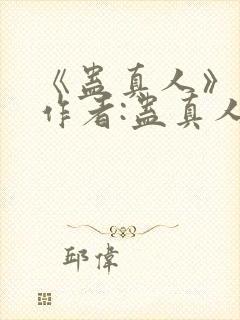 《蛊真人》
作者:蛊真人
邱偉